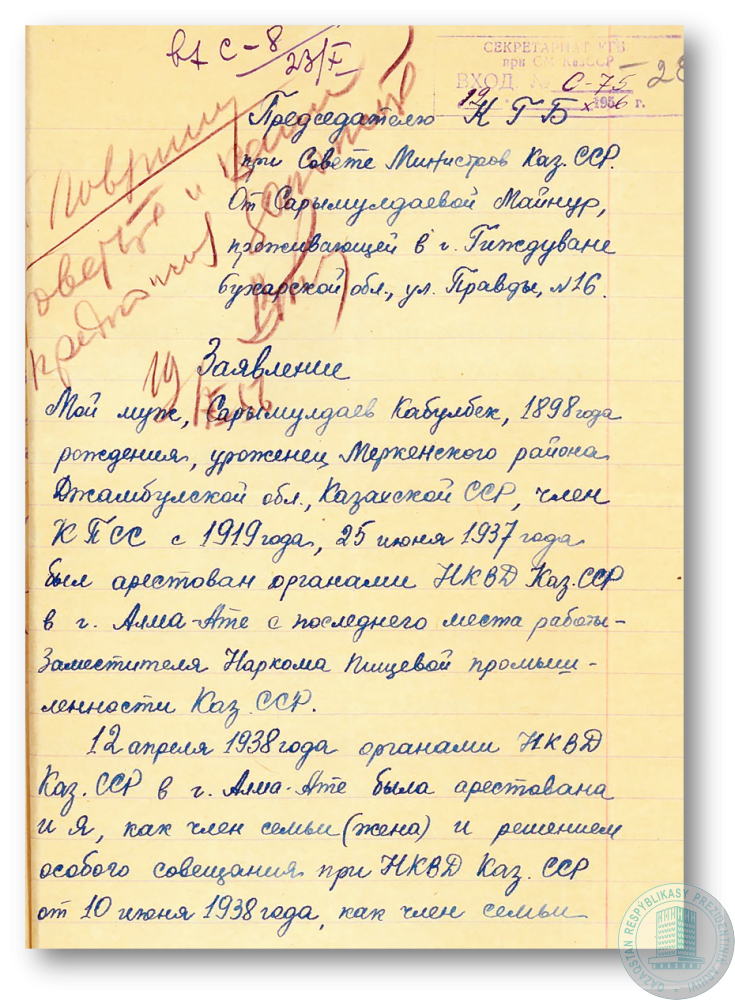 вх с-8
23/X
СЕКРЕТАРИАТ КГБ
при СМ КазССР
ВХОД. № С-75
19 X 1956 г.
28
Председателю КГБ
при Совете Министров Каз. ССР.
От Сарымулдаевой Майнур,
проживающей в г. Гиждуване
бухарской обл., ул. Правды, №16.
19/X 56
Заявление
Мой муж, Сарымулдаев Кабулбек, 1898 года
рождения, уроженец Меркенского района
Джамбулской обл., Казахской ССР, член
КПСС с 1919 года, 25 июня 1937 года
был арестован органами НКВД Каз.ССР
в г. Алма-Ате с последнего места работы-
Заместителя Наркома пищевой промыш-
ленности Каз. ССР.
12 апреля 1938 года органами НКВД
Каз. ССР в г. Алма-Ате была арестована
и я, как член семьи (жена) и решением
особого совещания при НКВД Каз. ССР
от 10 июня 1938 года, как член семьи
QAZAQSTAN RESPÝBLIKASY PREZIDENTINIŃ ARHIVI